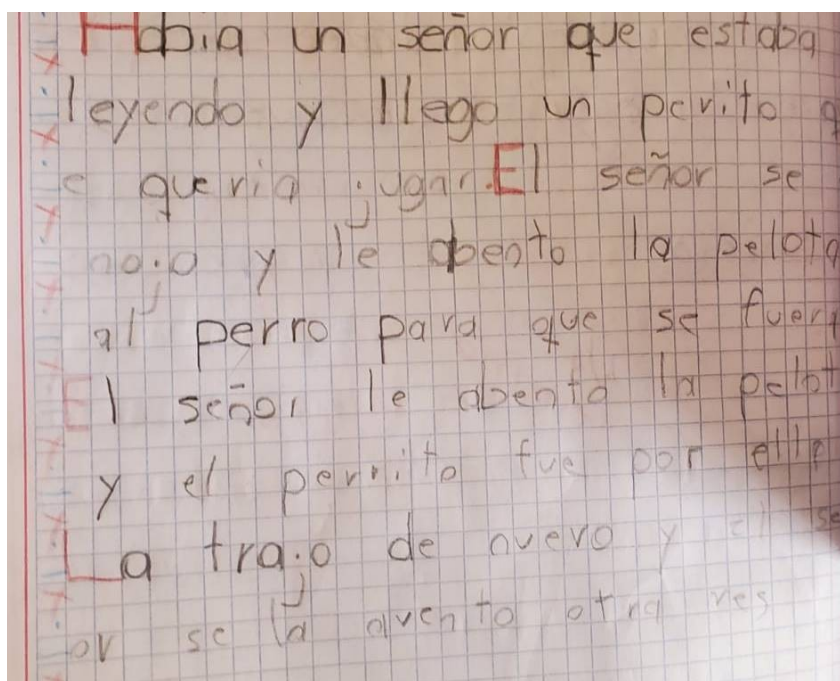 Habia un señor que estaba
leyendo y llego un perito q
e queria jugar. El señor se
nojo y le abento la pelota
al perro para que se fuera
El señor le abento la pelot
y el perrito fue por ella
La trajo de nuevo y el se
or se la avento otra ves